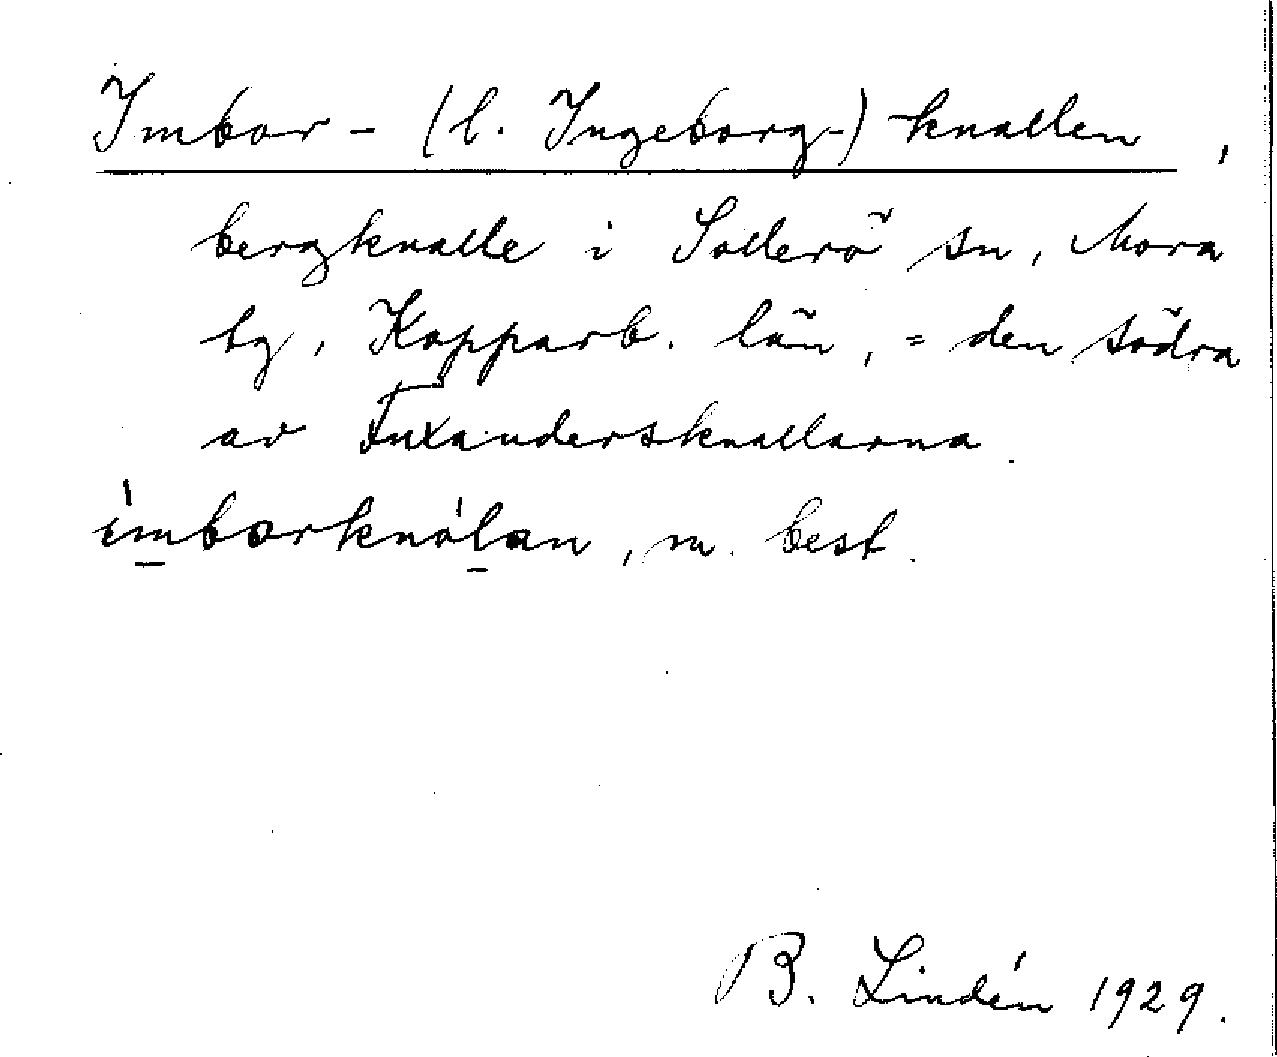 Imbor- (l. Ingeborg-) knallen,
bergknalle i Sollerö sn, Mora
tg, Kopparb. län, = den södra
av Fuxandersknallarna.
ímbo̱rknóḻan, m. best.
B. Lindén 1929.